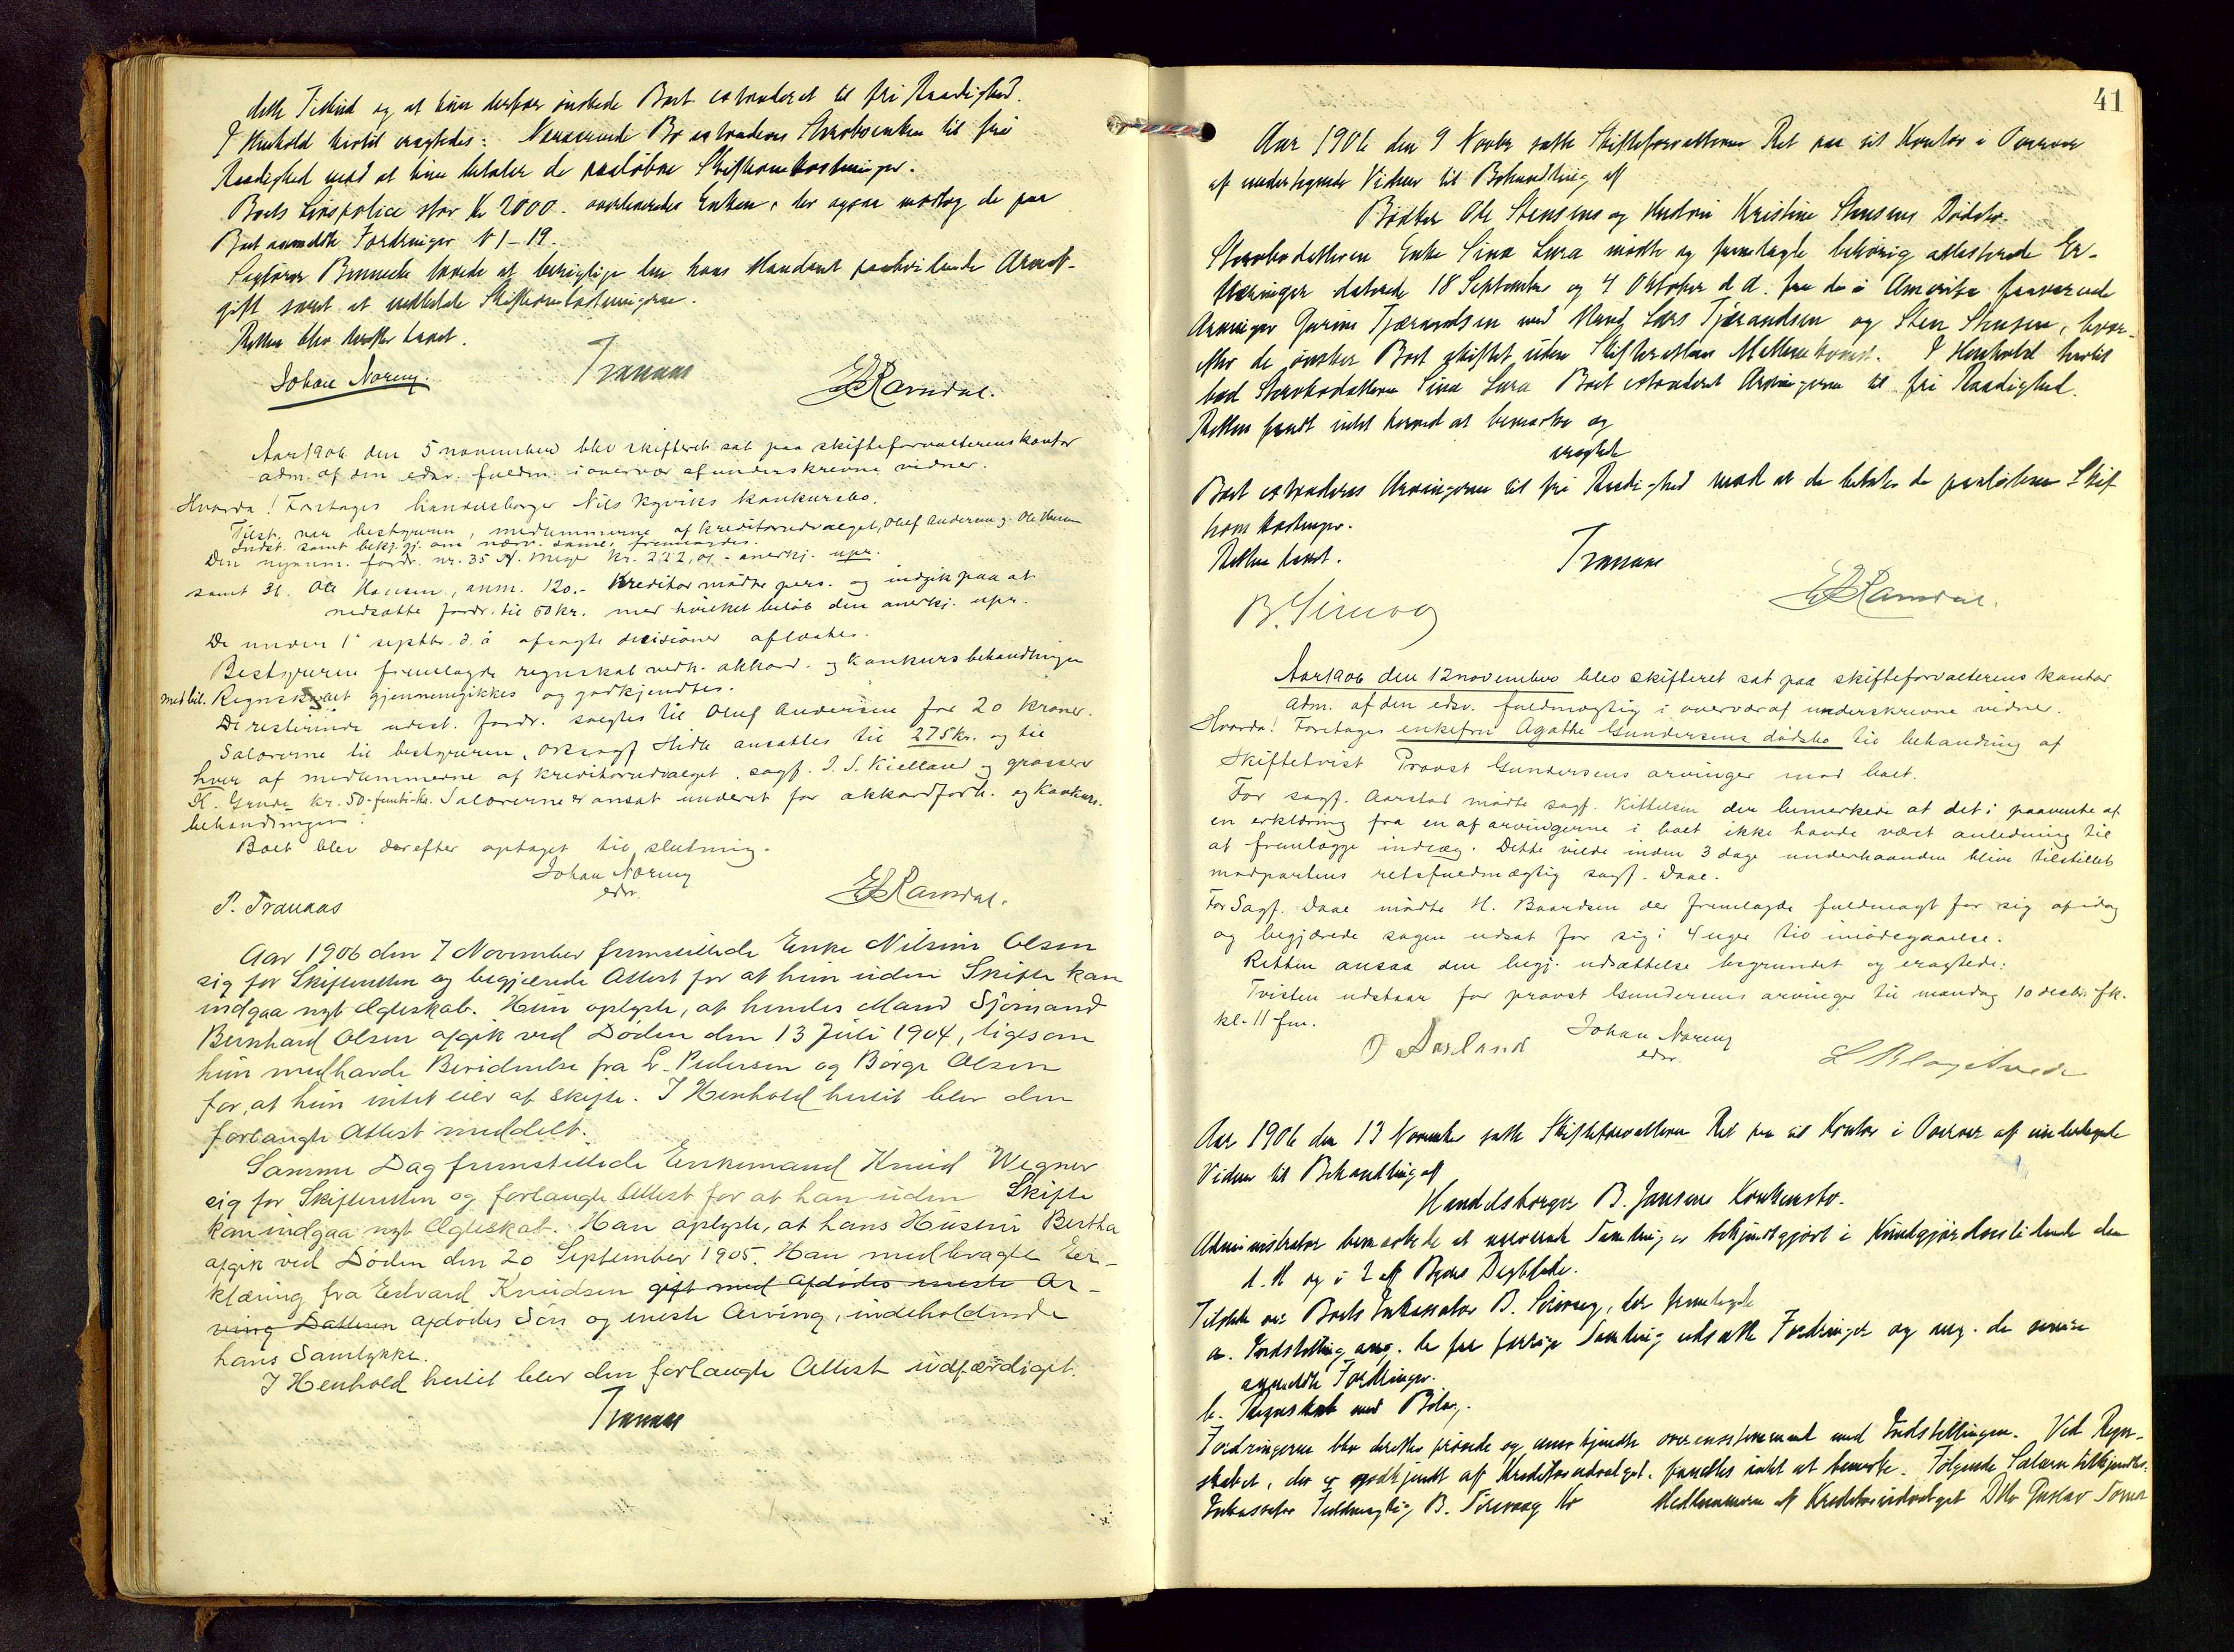 dette Tilbud og at hun derfor ønskede Boet extraderet til fri Raadighed.
I Henhold hertil eragtedes: Nærværende Bo extraderes Stervboenken til fri
Raadighed mod at hun betaler de paaløbne Skifteomkostninger.
Boets Livspolice stor Kr 2000. overleveredes Enken, der ogsaa modtog de paa
Boet anmeldte Fordringer N 1-19.
Sagfører lovede at berigtige den hans Mandant paahvilende Arveaf-
gift samt at indbetale Skifteomkostningerne.
Retten blev derefter hævet.
Johan Noreng. Tranaas E Ramdal.
Aar 1906 den 5 november blev skifteret sat paa skifteforvalterens kontor
adm. af den edsv. fuldm. i overvær af underskrevne vidner.
Hvorda! Foretages handelsborger Nils Kyviks konkursbo.
Tilst. var bestyreren, medlemmerne af kreditorudvalget, Oluf Andersen og Ole Hansen
Indst. samt bekj.gj. om nærv. saml. fremlagdes.
Den nyanm. fordr. nr. 35 A. Meyer kr. 222,01 - anerkj. upr.
samt 36. Ole Hansen, anm. 120.- Kreditor mødte pers. og indgik paa at
nedsætte fordr. til 60 kr. med hvilket beløb den anerkj. upr.
De under 1 septbr. d. å afsagte decisioner aflæstes.
Bestyreren fremlagde regnskab vedk. akkord. og konkursbehandlingen
med bil. Regnskabet gjennemgikkes og godkjendtes.
De resterende udest. fordr. solgtes til Oluf Andersen for 20 kroner.
Salærerne til bestyreren, orsagf Hidle ansattes til 275 kr. og til
hver af medlemmerne af kreditorudvalget, sagf. J. S. Kielland og grosserer
K. Grude kr. 50 - femti-kr. Salærerne er ansat underet for akkordforh. og konkurs-
behandlingen.
Boet blev derefter optaget til slutning.
Johan Noreng
edsv.
P. Tranaas E Ramdal.
Aar 1906 den 7 November fremstillede Enke Nilsine Olsen
sig for Skifteretten og begjærede Attest for at hun uden Skifte kan
indgaa nyt Ægteskab. Hun oplyste, at hendes Mand Sjømand
Bernhard Olsen afgik ved Døden den 13 Juli 1904, ligesom
hun medhavde Bevidnelse fra L. Pedersen og Børge Olsen
for, at hun intet eier at skifte. I Henhold hertil blev den
forlangte Attest meddelt.
Samme Dag fremstillede Enkemand Knud Wegner
sig for Skifteretten og forlangte Attest for at han uden Skifte
kan indgaa nyt Ægteskab. Han oplyste, at hans Hustru Bertha
afgik ved Døden den 20 September 1905. Han medbragte Er-
klæring fra Edvard Knudsen gift med Afdødes eneste Ar-
ving Datteren afdødes Søn og eneste Arving, indeholdende
hans Samtykke.
I Henhold hertil blev den forlangte Attest udfærdiget.
Tranaas
41
Aar 1906 den 9 Novbr satte Skifteforvalteren Ret paa sit Kontor i Overvær
af undertegnede Vidner til Behandling af
Bødker Ole Stensens og Hustru Kristine Stensens Dødsbo.
Stervbodatteren Enke Sina Lura mødte og fremlagte behørig attesterede Er-
klæringer daterede 18 September og 4 Oktober d. A. fra de i Amerika fraværende
Arvinger Gurine Tjærandsen med Mand Lars Tjærandsen og Sten Stensen, hvor-
efter de ønsker Boet skiftet uden Skifterettens Mellemkomst. I Henhold hertil
bad Stervbodatteren Sina Lura Boet extraderet Arvingerne til fri Raadighed.
Retten fandt intet herved at bemærke og
eragtede
Boet extraderes Arvingerne til fri Raadighed mod at de betaler de paaløbne Skif
teomkostninger.
Retten hævet. Tranaas
B. Sirevåg E Ramdal.
Aar 1906 den 12 november blev skifteret sat paa skifteforvalterens kontor
adm. af den edsv. fuldmægtig i overvær af underskrevne vidner.
Hvorda! Foretages enkefru Agathe Gundersens dødsbo til behandling af
Skiftetvist Provst Gundersens arvinger mod boet.
For sagf. Aarstad mødte sagf. Kittelsen der bemerkede at det i paavente af
en erklæring fra en af arvingerne i boet ikke havde været anledning til
at fremlægge indlæg. Dette vilde inden 3 dage underhaanden blive tilstillet
modpartens retsfuldmægtig sagf. Daae.
For Sagf. Daae mødte H. Baardsen der fremlagde fuldmagt for sig af idag
og begjærede sagen udsat for sig i 4 uger til imødegaaelse.
Retten ansaa den begj. udsættelse begrundet og eragtede:
Tvisten udstaar for provst Gundersens arvinger til mandag 10 decbr. fk.
kl. 11 fm.
Johan Noreng
O Aarland edsv.
Aar 1906 den 13 November satte Skifteforvalteren Ret paa sit Kontor i Overvær af undertegnede
Vidner til Behandling af
Handelsborger B. Jansens Konkursbo.
Administrator bemærkede at nærværende Samling er bekjendtgjort i Kundgjørelsestidende den
d. M og i 2 af Byens Dagblade.
Tilstede var Boets Inkassator B. Sirevaag, der fremlagde
a. Indstilling ang. de paa forrige Samling udsatte Fordringer og ang. de senere
anmeldte Fordringer.
b. Regnskab med Bilag.
Fordringerne blev derefter prøvede og anerkjendte overensstemmende med Indstillingen. Ved Regn-
skabet, der er godkjendt af Kreditorudvalget, fandtes intet at bemærke. Følgende Salærer tilkjendtes:
Inkassator Fuldmægtig B. Sirevaag Kr Medlemmerne af Kreditorudvalget Gustav